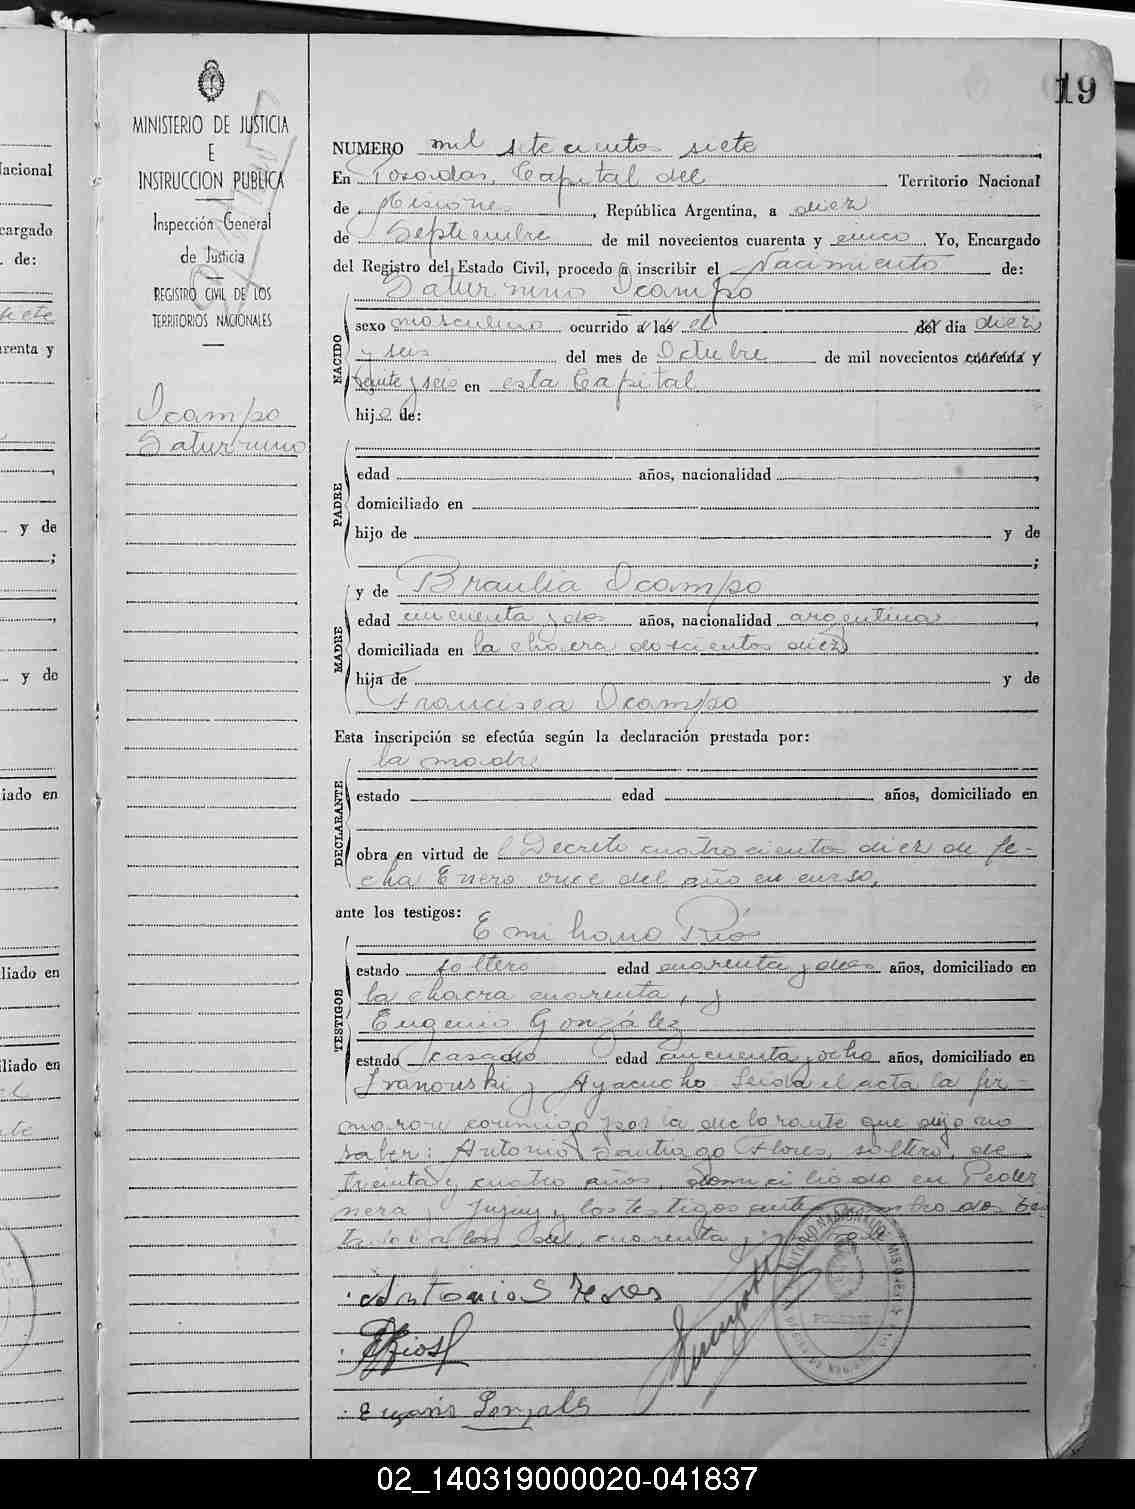 19
MINISTERIO DE JUSTICIA
E
INSTRUCCION PUBLICA
Inspección General
de Justicia
REGISTRO CIVIL DE LOS
TERRITORIOS NACIONALES
Ocampo
Saturnino
NUMERO mil setecientos siete
En Posadas, Capital del Territorio Nacional
de Misiones, República Argentina, a diez
de Septiembre de mil novecientos cuarenta y cinco. Yo, Encargado
del Registro del Estado Civil, procedo a inscribir el Nacimiento de:
Saturnino Ocampo
NACIDO
sexo masculino ocurrido a las el del dia diez
y seis del mes de Octubre de mil novecientos cuarenta y
veinte y seis en esta Capital
hijo de:
PADRE
edad años, nacionalidad
domiciliado en
hijo de y de
;
MADRE
y de Braulia Ocampo
edad cincuenta y dos años, nacionalidad argentina,
domiciliada en la chacra doscientos diez
hija de y de
Francisca Ocampo
Esta inscripción se efectúa según la declaración prestada por:
la madre
DECLARANTE
estado edad años, domiciliado en
obra en virtud del Decreto cuatrocientos diez de fe-
cha Enero once del año en curso,
ante los testigos:
Emiliano Ríos
TESTIGOS
estado soltero edad cuarenta y dos años, domiciliado en
la chacra cuarenta, y
Eugenio González
estado casado edad cincuenta y ocho años, domiciliado en
y Ayacucho. Leida el acta la fir-
maron conmigo por la declarante que dijo no
saber: Antonio Santiago Flores, soltero, de
treinta y cuatro años, domiciliado en Peder
nera y Jujuy y los testigos
cuarenta y
Antonio S Flores
ERios
Eugenio Gonzales
acional
cargado
. de:
siete
renta y
y de
;
y de
iado en
liado en
liado en
02_140319000020-041837